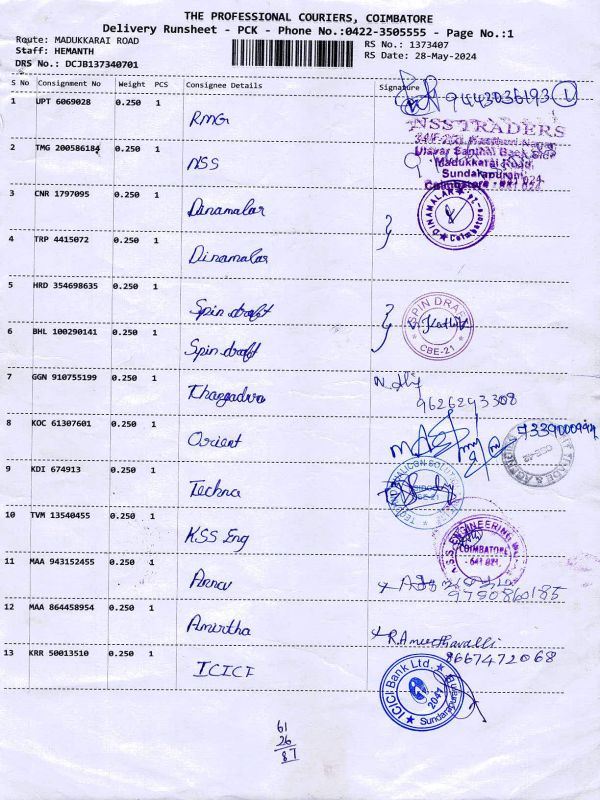 THE PROFESSIONAL COURIERS, COIMBATORE
Delivery Runsheet - PCK - Phone No.:0422-3505555 - Page No.:1
Route: MADUKKARAI ROAD
Staff: HEMANTH
DRS No.: DCJB137340701
RS No.: 1373407
RS Date: 28-May-2024
S No Consignment No Weight PCS Consignee Details Signature
1 UPT 6069028 0.250 1 RMG 9443036193 1
NSS TRADERS
2 TMG 200586184 0.250 1 NSS
Madukkarai Road,
Sundakapuram
Coimbatore - 641 024
3 CNR 1797095 0.250 1 Dinamalar
DINAMALAR Coimbatore
4 TRP 4415072 0.250 1 Dinamalar
5 HRD 354698635 0.250 1 Spin draft
SPIN DRAFT CBE-21
6 BHL 100290141 0.250 1 Spin draft
7 GGN 910755199 0.250 1
9626293308
8 KOC 61307601 0.250 1 Orient
9 KDI 674913 0.250 1 Techno
10 TVM 13540455 0.250 1 KSS Eng
ENGINEERING COIMBATORE - 641 021
11 MAA 943152455 0.250 1
9790860185
12 MAA 864458954 0.250 1 Amirtha
R.Ameerthavalli
8667472068
13 KRR 50013510 0.250 1 ICICI
ICICI Bank Ltd. 2041 Sundarapuram
61
26
87